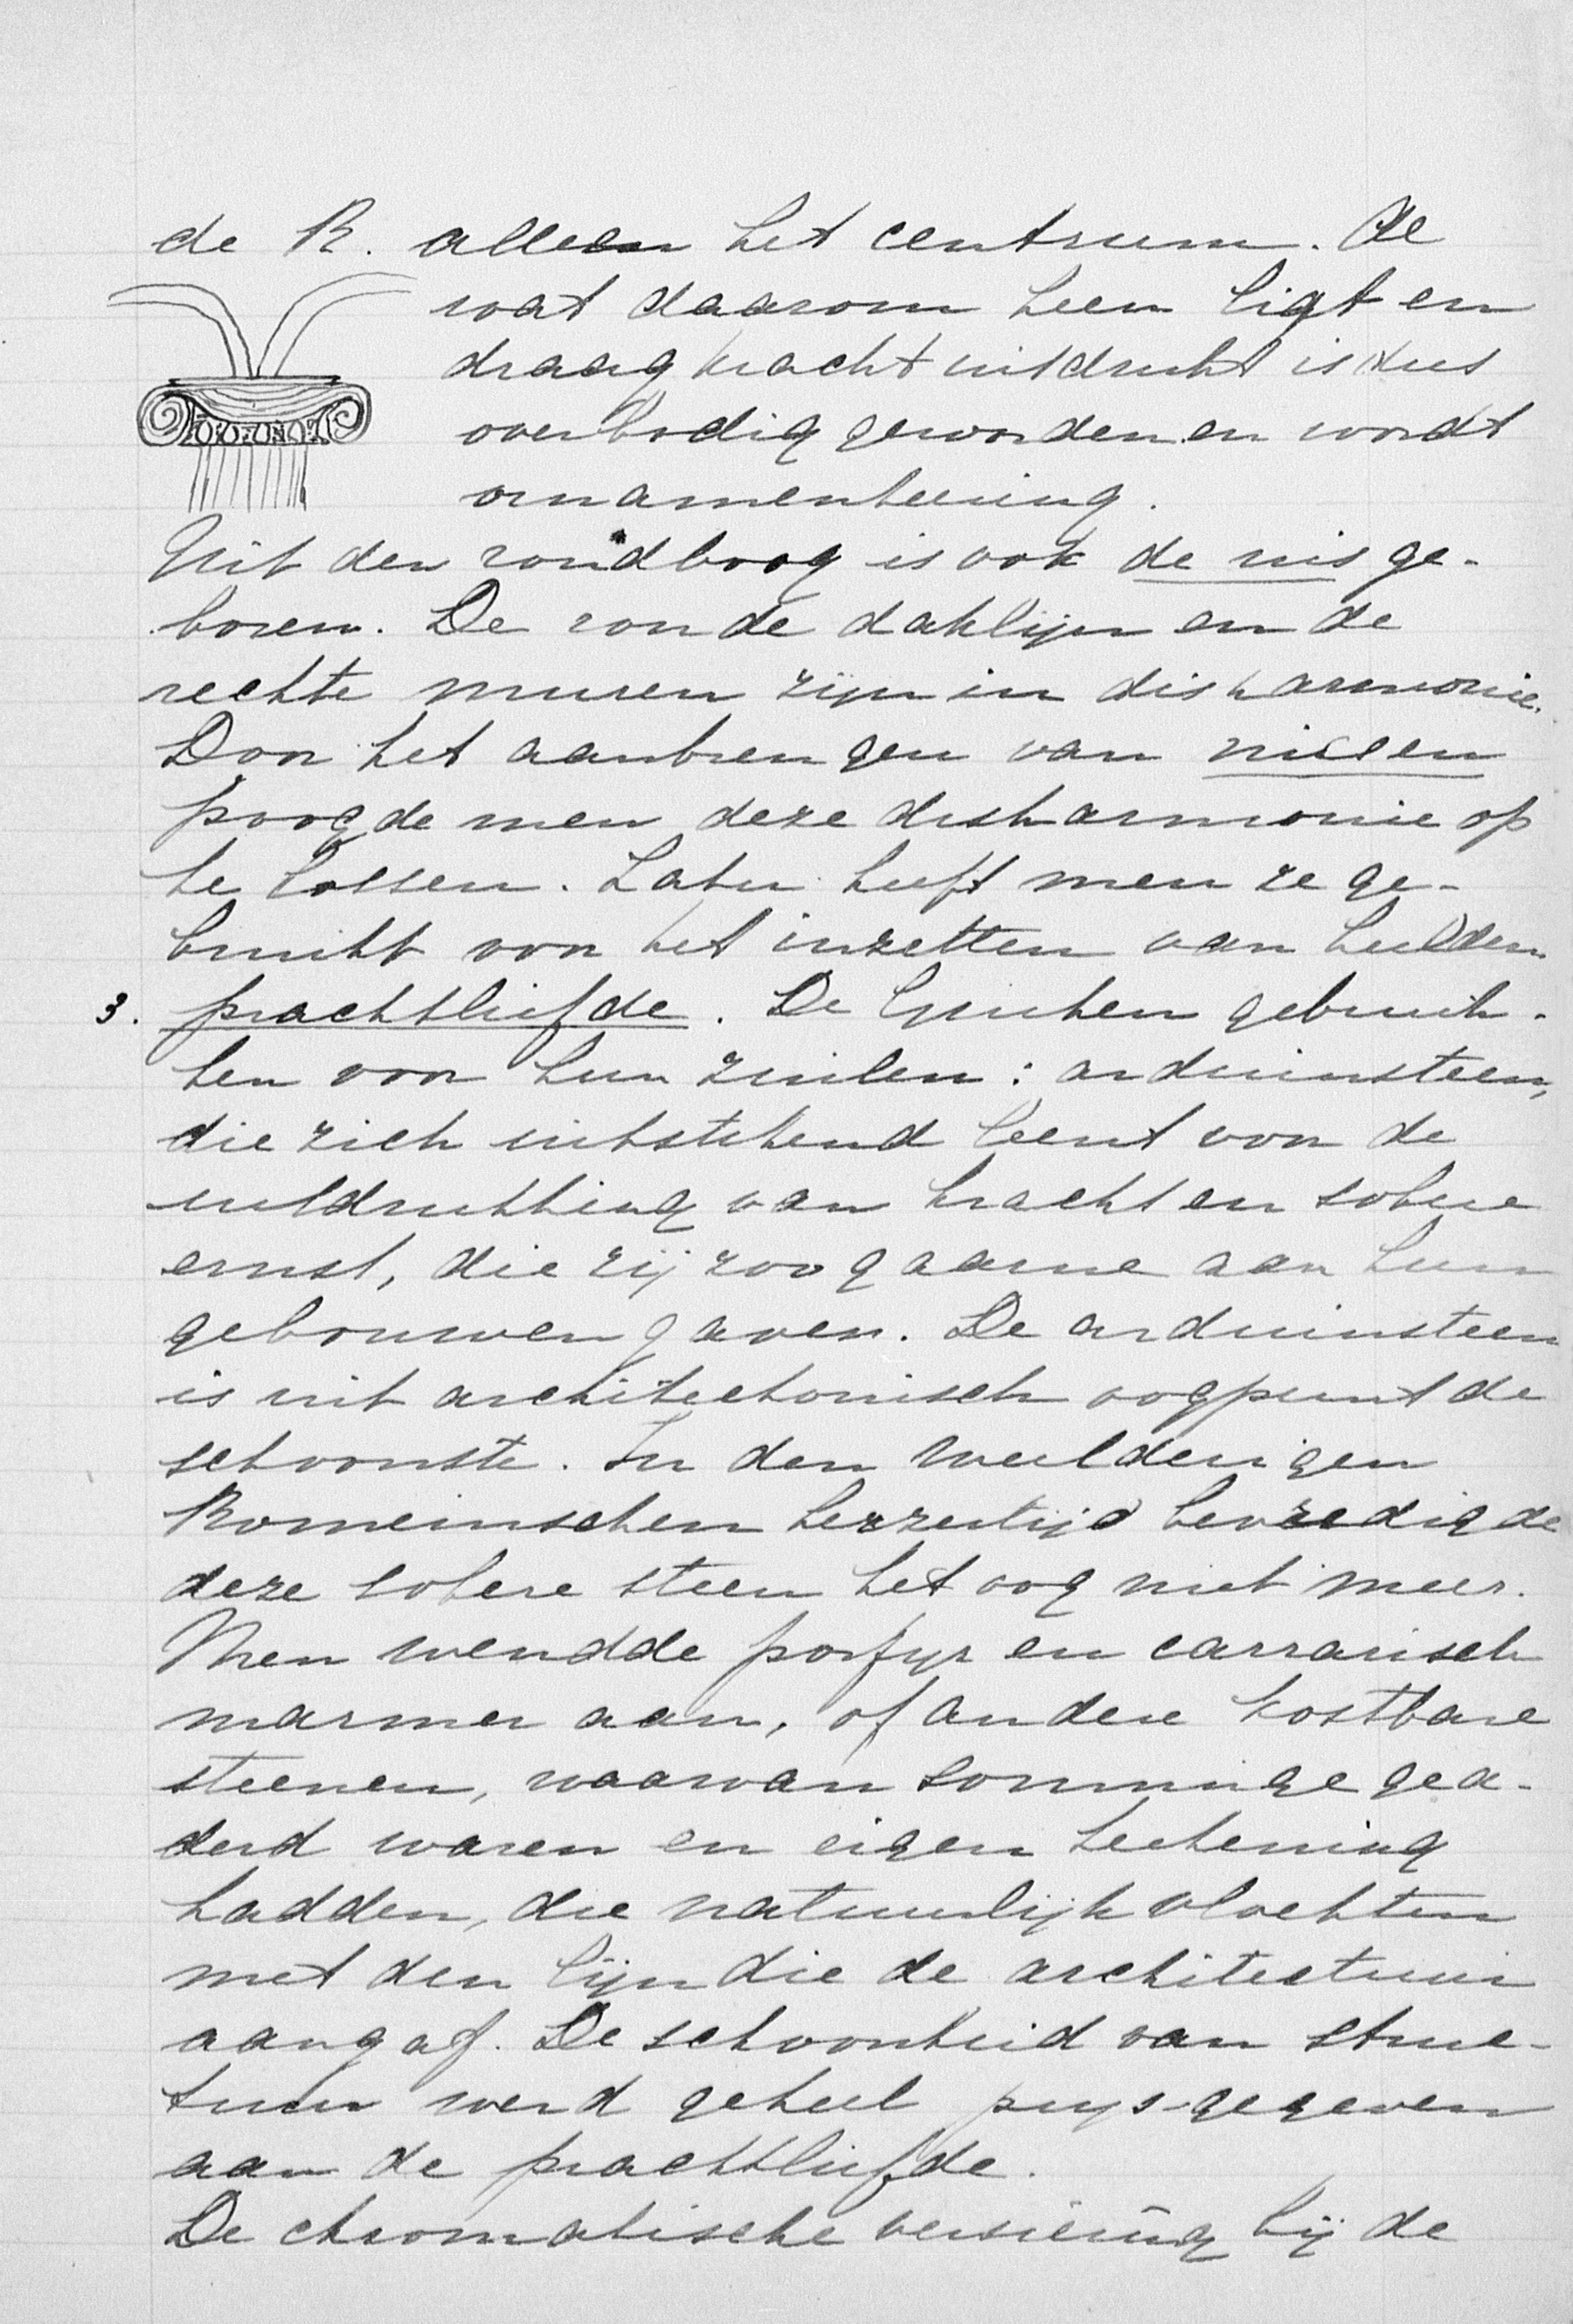 de R. alleen het centrum. Al
wat daarom heen ligt en
draagkracht uitdrukt is dus
overbodig geworden en wordt
ornamenteering.
Uit den rondboog is ook de nis ge-
boren. De ronde daklijn en de
rechte muren zijn in disharmonie.
Door het aanbrengen van nissen
poogde men deze disharmonie op
te lossen. Later heeft men ze ge-
bruikt voor het inzetten van beelden
3. prachtliefde. De Grieken gebruik-
ten voor hun zuilen: arduinsteen,
die zich uitstekend leent voor de
uitdrukking van kracht en sobere
ernst, die zij zoo gaarne aan hun
gebouwen gaven. De arduinsteen
is uit architectonisch oogpunt de
schoonste. In den weelderigen
Romeinschen keizertijd bevredigde
deze sobere steen het oog niet meer.
Men wendde porfyr en carrarisch
marmer aan, of andere kostbare
steenen, waarvan sommige gea-
derd waren en eigen teekening
hadden, die natuurlijk vlochten
met den lijn die de architectuur
aangaf. De schoonheid van struc-
tuur werd geheel prijs-gegeven
aan de prachtliefde.
De chromatische versiering bij de